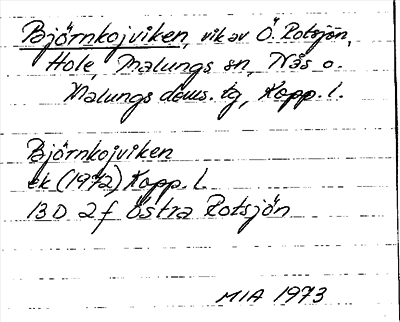 Björnkojviken, vik av Ö. Rotsjön,
Hole, Malungs sn, Nås o.
Malungs doms. tg, Kopp. l.
Björnkojviken
ek (1972) Kopp. l.
13D 2f Östra Rotsjön
MIA 1973